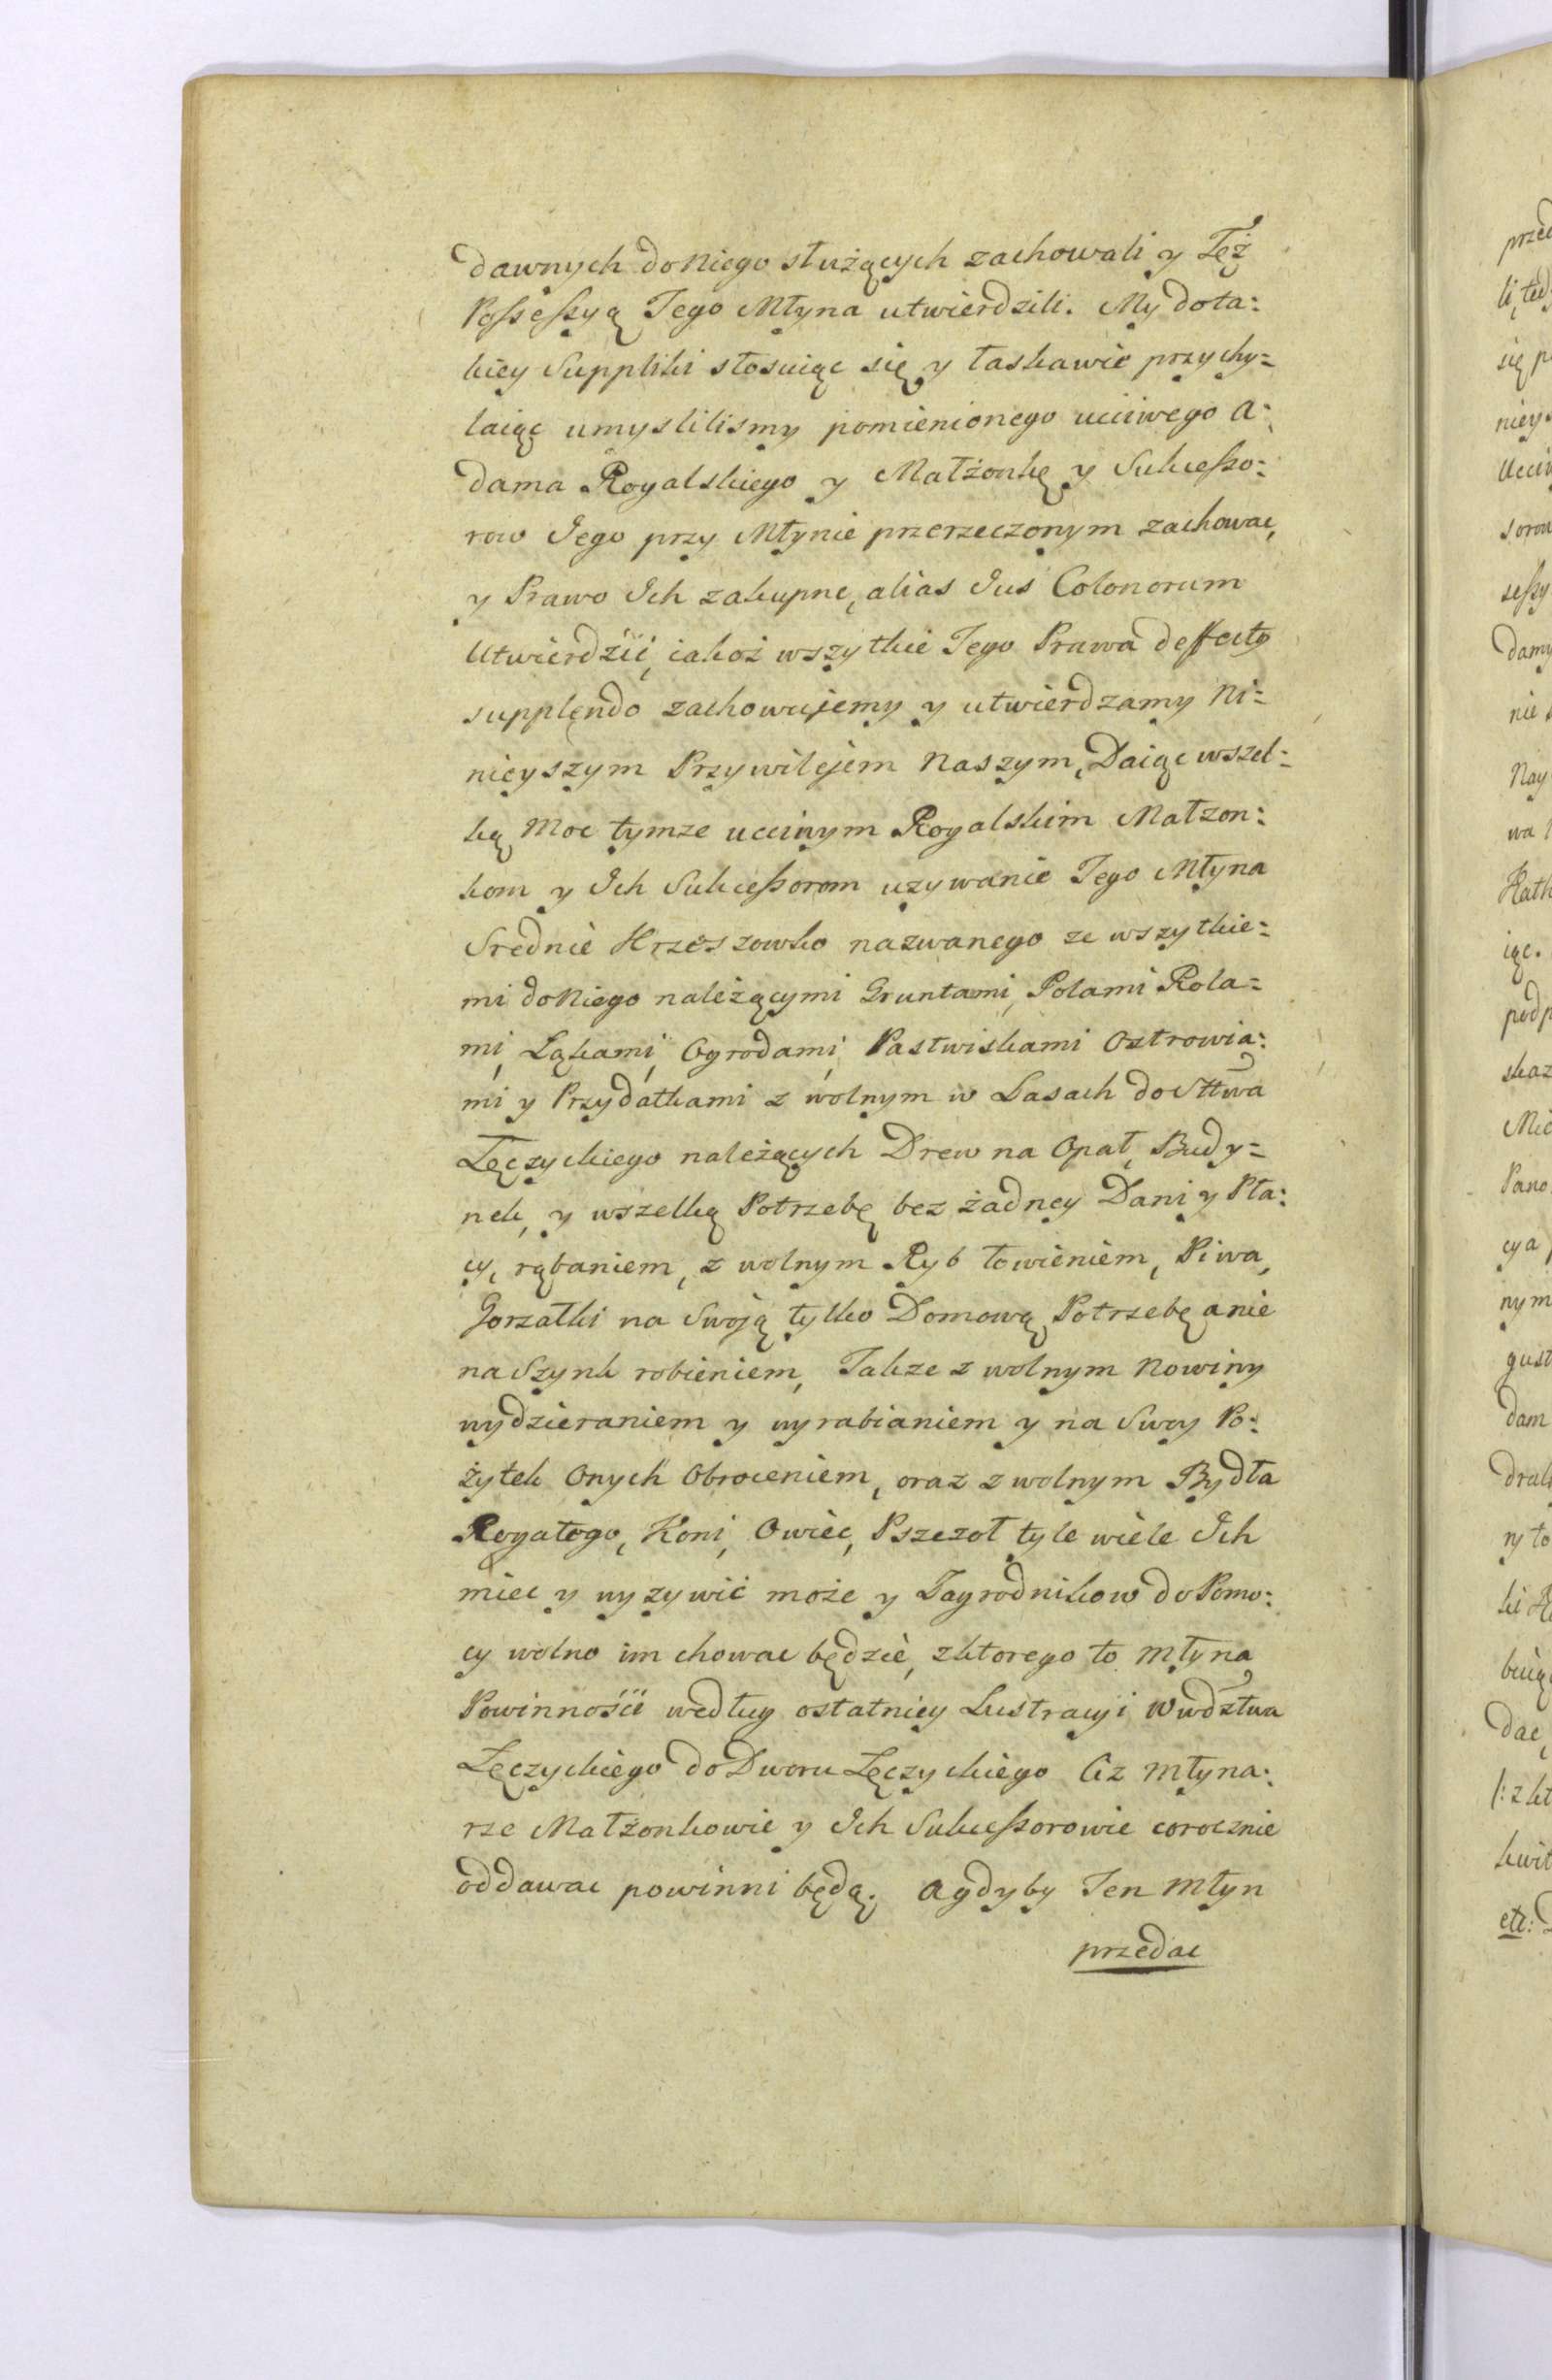 dawnych do Niego służących zachowali y Też
Possessyą Tego Młyna utwierdzili. My do ta:
kiey Suppliki stosuiąc się y łaskawie przychy=
laiąc umyslilismy pomienionego ucciwego A:
dama Rogalskiego y Małżonkę y Sukcesso:
row Jego przy Młynie przerzeczonym zachowac,
y Prawo Ich zakupne, alias Jus Colonorum
Utwierdźić, iakoż wszytkie Jego Prawa deffectą
supplendo zachowujemy y utwierdzamy Ni=
nieyszym Przywilejem Naszym, Daiąc wszel=
ką Moc tymze ucciwym Rogalskim Małzon:
kom y Ich Sukcessorom uzywanie Tego Młyna
Srednie Krzeszowko nazwanego ze wszytkie=
mi do Niego należącymi Gruntami, Polami Rola=
mi, Ląkami, Ogrodami, Pastwiskami Ostrowia:
mi y Przydatkami z wolnym w Lasach do Sttwa
Łęczyckiego należących Drew na Opał, Budy=
nek, y wszelką Potrzebę bez żadney Dani y Pła:
cy, rąbaniem, z wolnym Ryb łowieniem, Piwa,
Gorzałki na Swoją tylko Domową Potrzebę a nie
na Szynk robieniem, Takze z wolnym Nowiny
wydzieraniem y wyrabianiem y na Swoy Po:
żytek Onych Obroceniem, oraz z wolnym Bydła
Rogatego, Koni, Owiec, Pszczoł tyle wiele Ich
miec y wyzywić może y Zagrodnikow do Pomo:
cy wolno im chowac będzie, z ktorego to Młyna
Powinnośći według ostatniey Lustracyi Wwdztwa
Łęczyckiego do Dworu Łęczyckiego Ciz Młyna:
rze Małżonkowie y Ich Sukcessorowie corocznie
oddawac powinni będą. A gdyby Ten Młyn
przedac